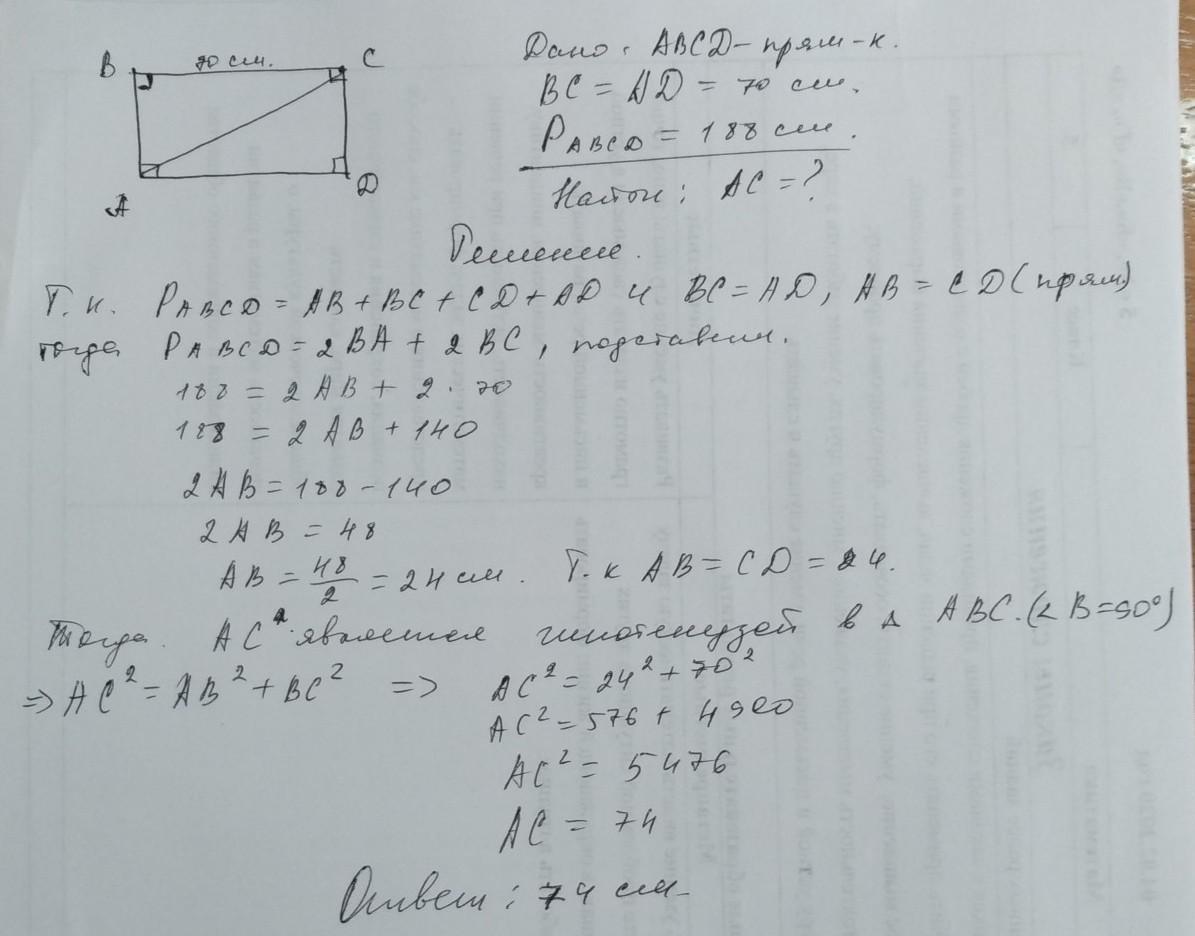 B 70 см. C
A D
Дано: ABCD – прям-к.
BC = AD = 70 см.
P ABCD = 188 см.
Найти: AC = ?
Решение.
Т.к. P ABCD = AB + BC + CD + AD и BC = AD, AB = CD (прям)
тогда P ABCD = 2 BA + 2 BC, подставим.
188 = 2 AB + 2 · 70
188 = 2 AB + 140
2 AB = 188 - 140
2 AB = 48
AB = 48/2 = 24 см. Т.к AB = CD = 24.
Тогда. AC является гипотенузой в Δ ABC. (∠ B = 90°)
=> AC² = AB² + BC² => AC² = 24² + 70²
AC² = 576 + 4900
AC² = 5476
AC = 74
Ответ: 74 см